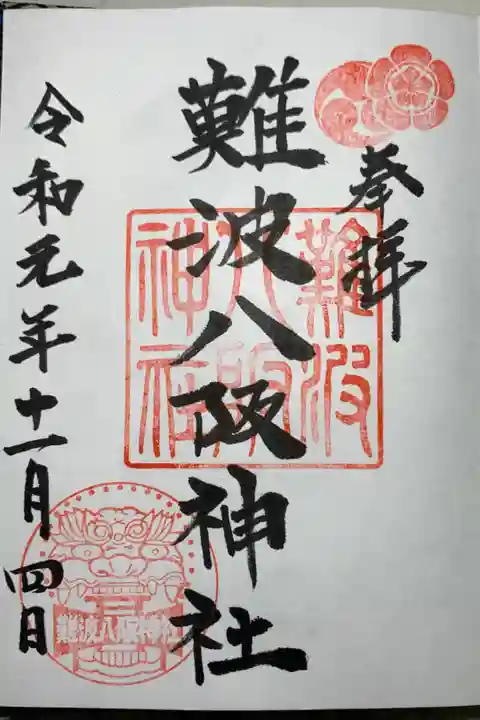 奉拝
難波八阪神社
難波八阪神社
令和元年十一月四日
難波八阪神社